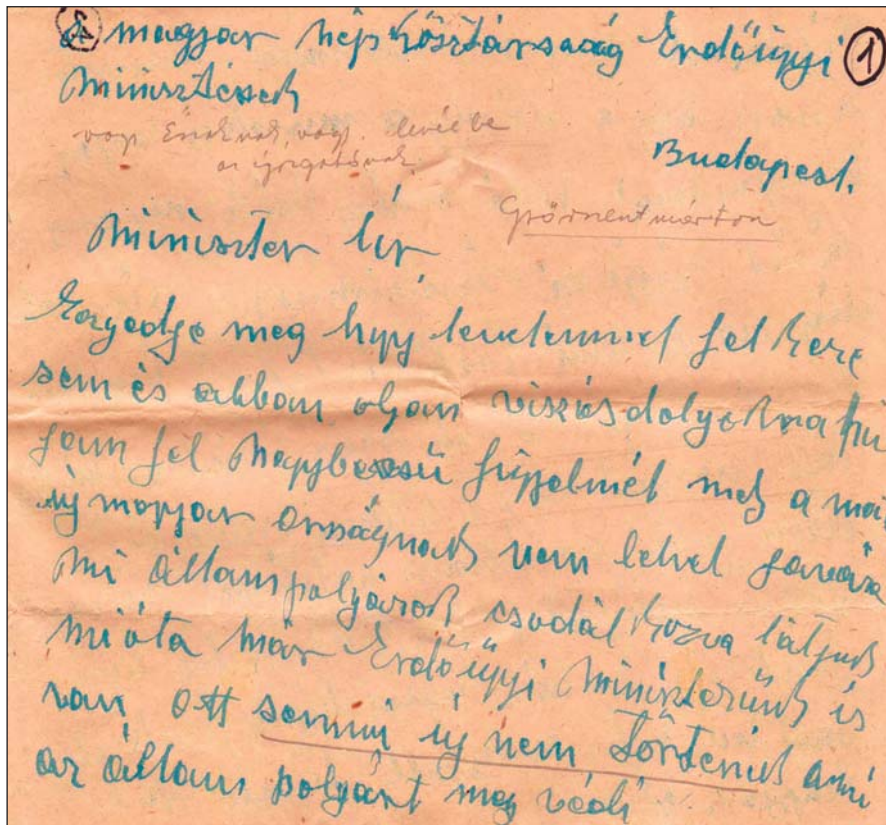 A magyar nép Kösztársaság Erdőügyi ①
Minisztének
vagy Éneknek, vagy levélbe
az igazgatónak
Budapest.
Győrszentmárton
Miniszter Úr,
Engedje meg hogy levelemmel fel kere
sem és abban olyan viszás dolgokra hí
jam fel Nagybecsü figyelmét mely a mai
új magyar országnak nem lehet javára
Mi állampolgárok csodál kozva látjuk
mióta már Erdőügyi Miniszterünk is
van, ott semmi új nem történik ami
az állam polgárt meg védi